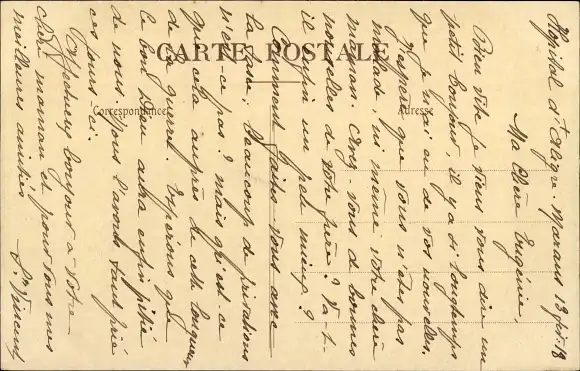 CARTE POSTALE
Correspondance
Adresse
Hôpital d'Aligre. Marans 19 18
Ma Chère Eugénie,
Bien vite je viens vous dire un
petit bonjour, il y a si longtemps
que je n'ai eu de vos nouvelles.
J'espère que vous n'êtes pas
malade, ni même votre chère
maman. Avez-vous de bonnes
nouvelles de votre père? Va-t-
il enfin un peu mieux?
Comment faites-vous avec
la taxe; beaucoup de privations
n'est-ce pas? mais qu'est-ce
que cela auprès de cette longueur
de la guerre. Espérons que
le bon Dieu aura enfin pitié
de nous tous l'avons tant prié
ces jours-ci.
Affectueux bonjour à votre
chère maman et pour vous mes
meilleures amitiés
Sr Vincent